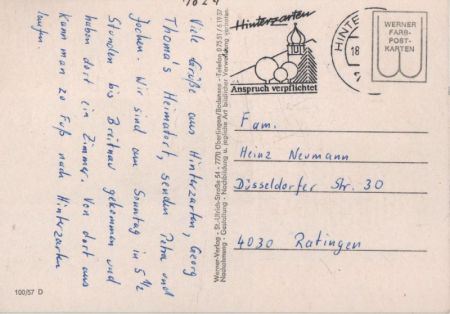 Viele Grüße aus Hinterzarten, Georg
Thoma's Heimatort, senden Petra und
Jochen. Wir sind am Sonntag in 5 1/2
Stunden bis Breitnau gekommen und
haben dort ein Zimmer. Von dort aus
kann man zu Fuß nach Hinterzarten
laufen.
100/57 D
Werner-Verlag · St.-Ulrich-Straße 54 · 7770 Überlingen/Bodensee · Telefon 0 75 51 / 6 19 37
Nachahmung · Gestaltung · Nachbildung u. jegliche Art bildlicher Verwendung verboten.
Hinterzarten
Anspruch verpflichtet
HINTE
18
WERNER
FARB-
POST-
KARTEN
Fam.
Heinz Neumann
Düsseldorfer Str. 30
4030 Ratingen